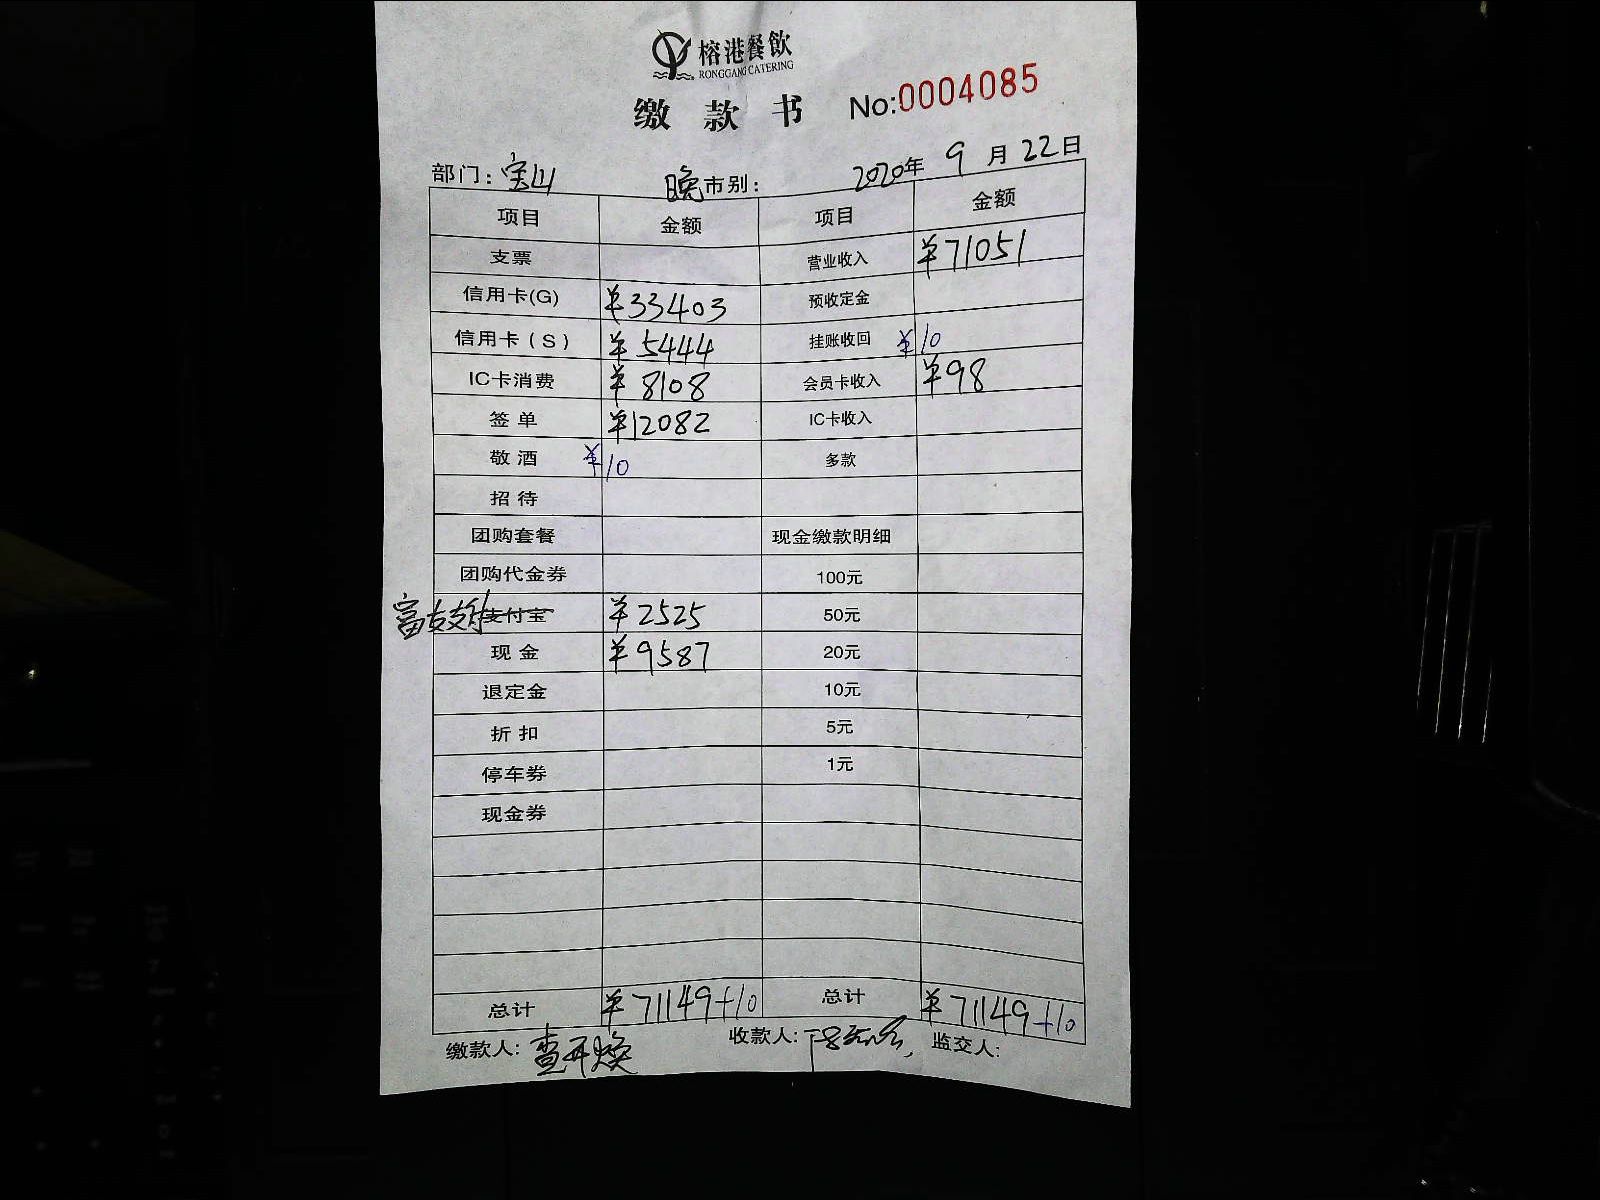 榕港餐飲
RONGGANG CATERING
缴款书 No:0004085
部门：宝山 晚市别： 2020年9月22日
项目 金额 项目 金额
支票 营业收入 ¥71051
信用卡(G) ¥33403 预收定金
信用卡（S） ¥5444 挂账收回 ¥10
IC卡消费 ¥8108 会员卡收入 ¥98
签单 ¥12082 IC卡收入
敬酒 ¥10 多款
招待
团购套餐 现金缴款明细
团购代金券 100元
富友支付 支付宝 ¥2525 50元
现金 ¥9587 20元
退定金 10元
折扣 5元
停车券 1元
现金券
总计 ¥71149+10 总计 ¥71149+10
缴款人： 收款人： 监交人：